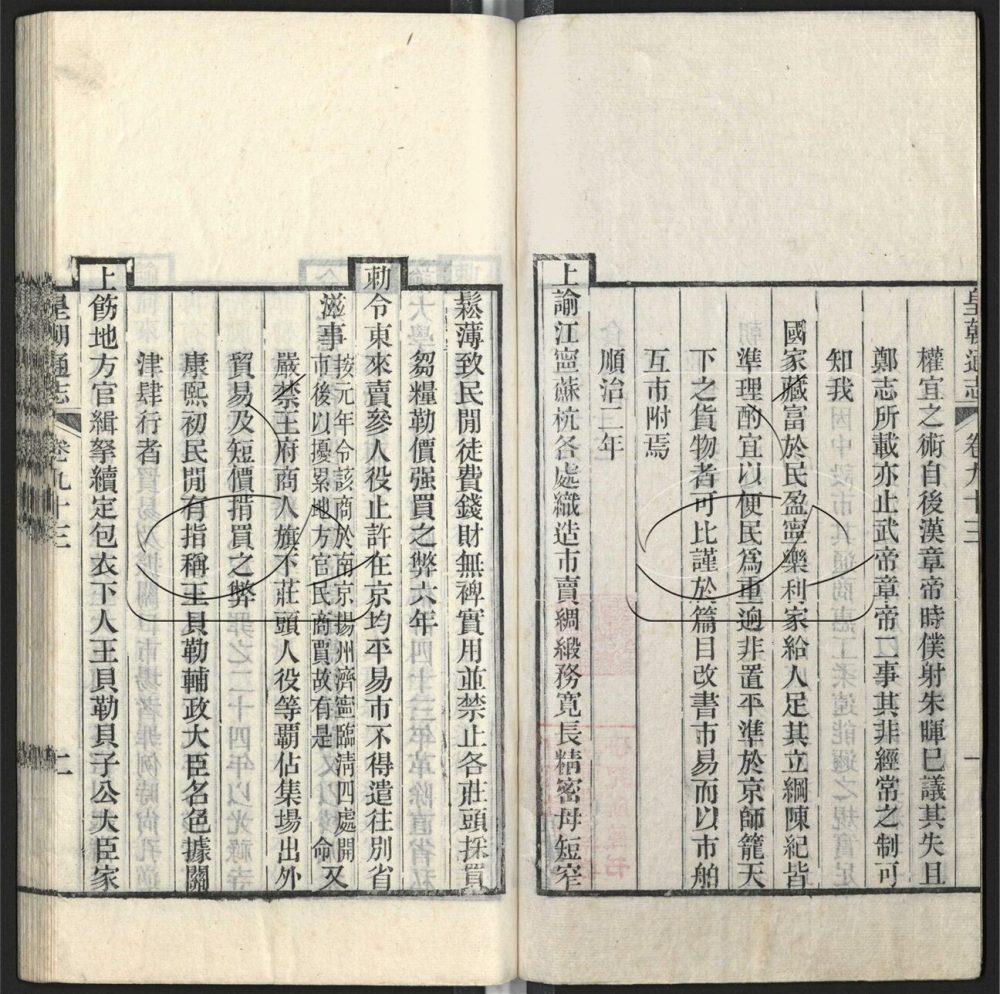 皇朝通志　卷九十三　一
權宜之術自後漢章帝時僕射朱暉巳議其失且
鄭志所載亦止武帝章帝二事其非經常之制可
知我
國家藏富於民盈寧樂利家給人足其立綱陳紀皆
準理酌宜以便民爲重逈非置平準於京師籠天
下之貨物者可比謹於篇目改書市易而以市舶
互市附焉
順治二年
上諭江寧蘇杭各處織造市賣綢緞務寛長精密毋短窄
鬆薄致民閒徒費錢財無裨實用並禁止各莊頭採買
芻糧勒價强買之弊六年
勅令東來賣參人役止許在京均平易市不得遣往別省
滋事按元年令該商於南京揚州濟寧臨淸四處開
市後以擾累地方官民商賈故有是命又
嚴禁王府商人旗下莊頭人役等覇佔集場出外
貿易及短價掯買之弊
康熙初民閒有指稱王貝勒輔政大臣名色據關
津肆行者
上飭地方官緝拏續定包衣下人王貝勒貝子公大臣家
皇朝通志　卷九十三　二